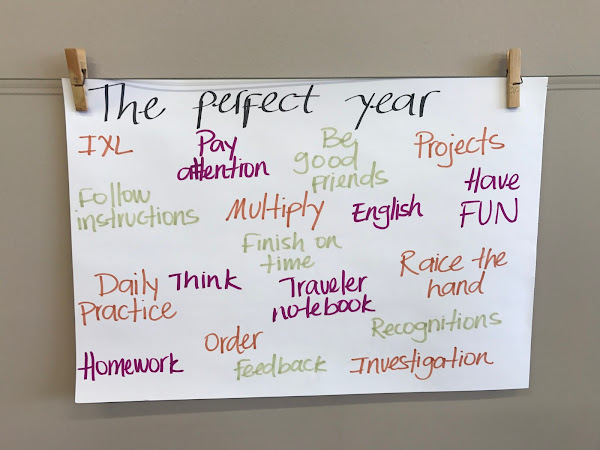 The perfect year
IXL
Pay
attention
Be
good
Friends
Projects
Have
FUN
Follow
instructions
Multiply
English
Finish on
time
Raice the
hand
Daily
Practice
Think
Traveler
notebook
Recognitions
Order
Homework
Feedback
Investigation